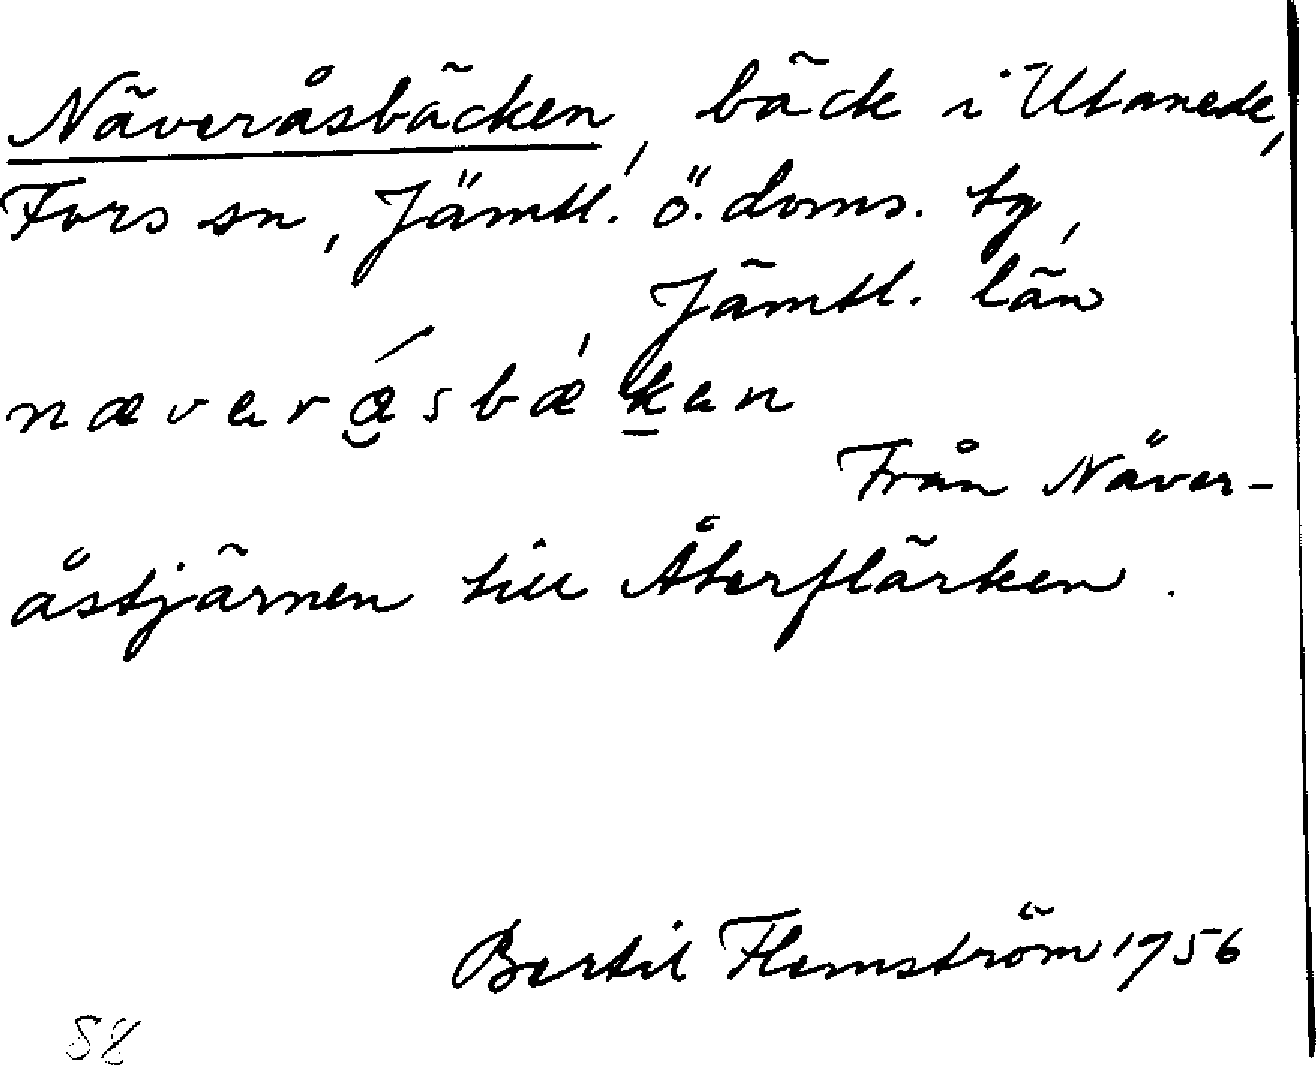 Näveråsbäcken, bäck i Utanede,
Fors sn, Jämtl. ö. doms. tg,
Jämtl. län
Från Näver-
åstjärnen till Återflärken.
Bertil Flemström 1956